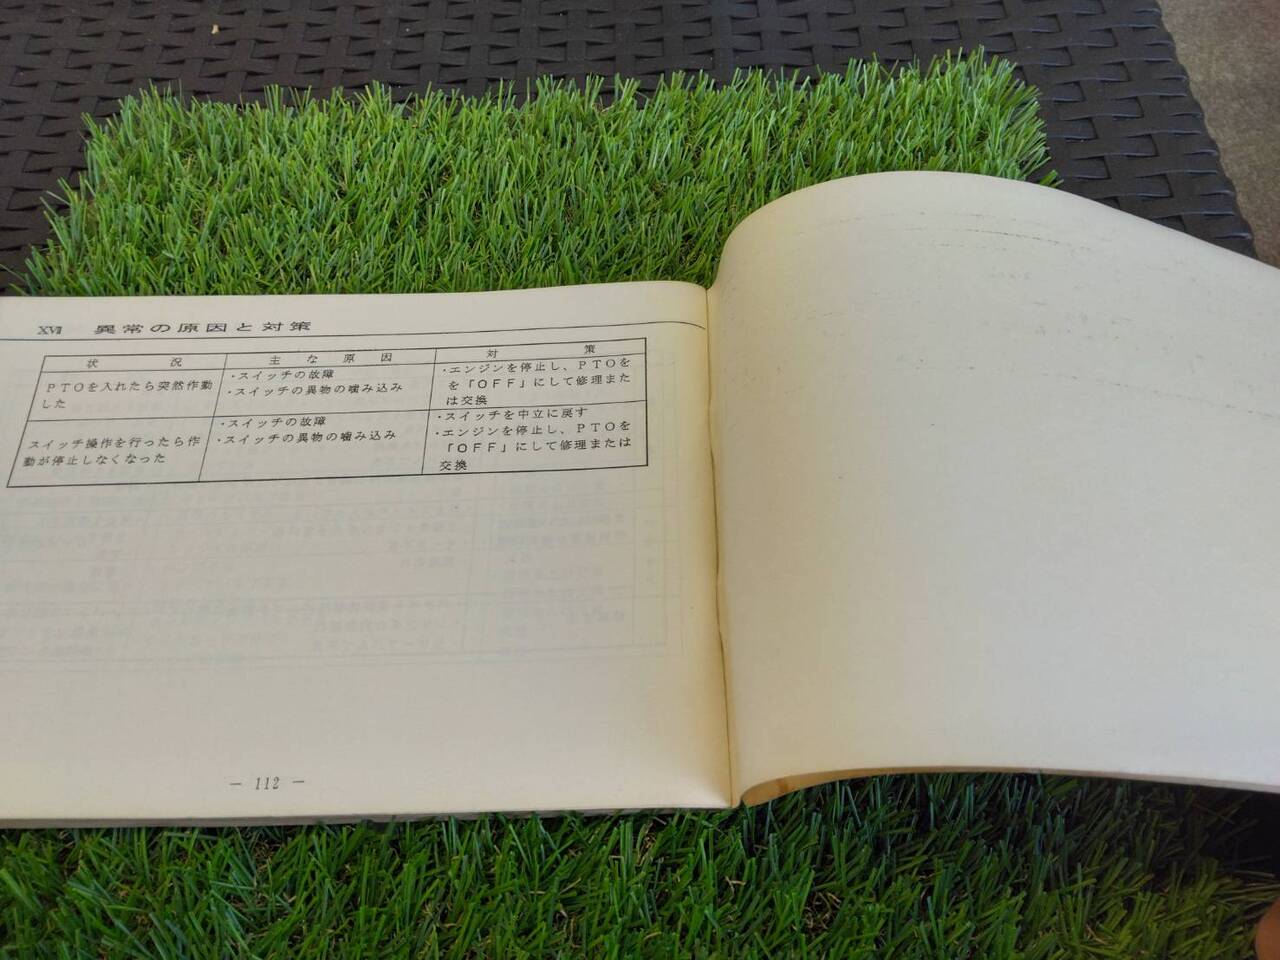 XVII 異常の原因と対策
状況 主な原因 対策
PTOを入れたら突然作動
した
・スイッチの故障
・スイッチの異物の噛み込み
・エンジンを停止し、PTOを
を「OFF」にして修理また
は交換
スイッチ操作を行ったら作
動が停止しなくなった
・スイッチの故障
・スイッチの異物の噛み込み
・スイッチを中立に戻す
・エンジンを停止し、PTOを
「OFF」にして修理または
交換
− 112 −